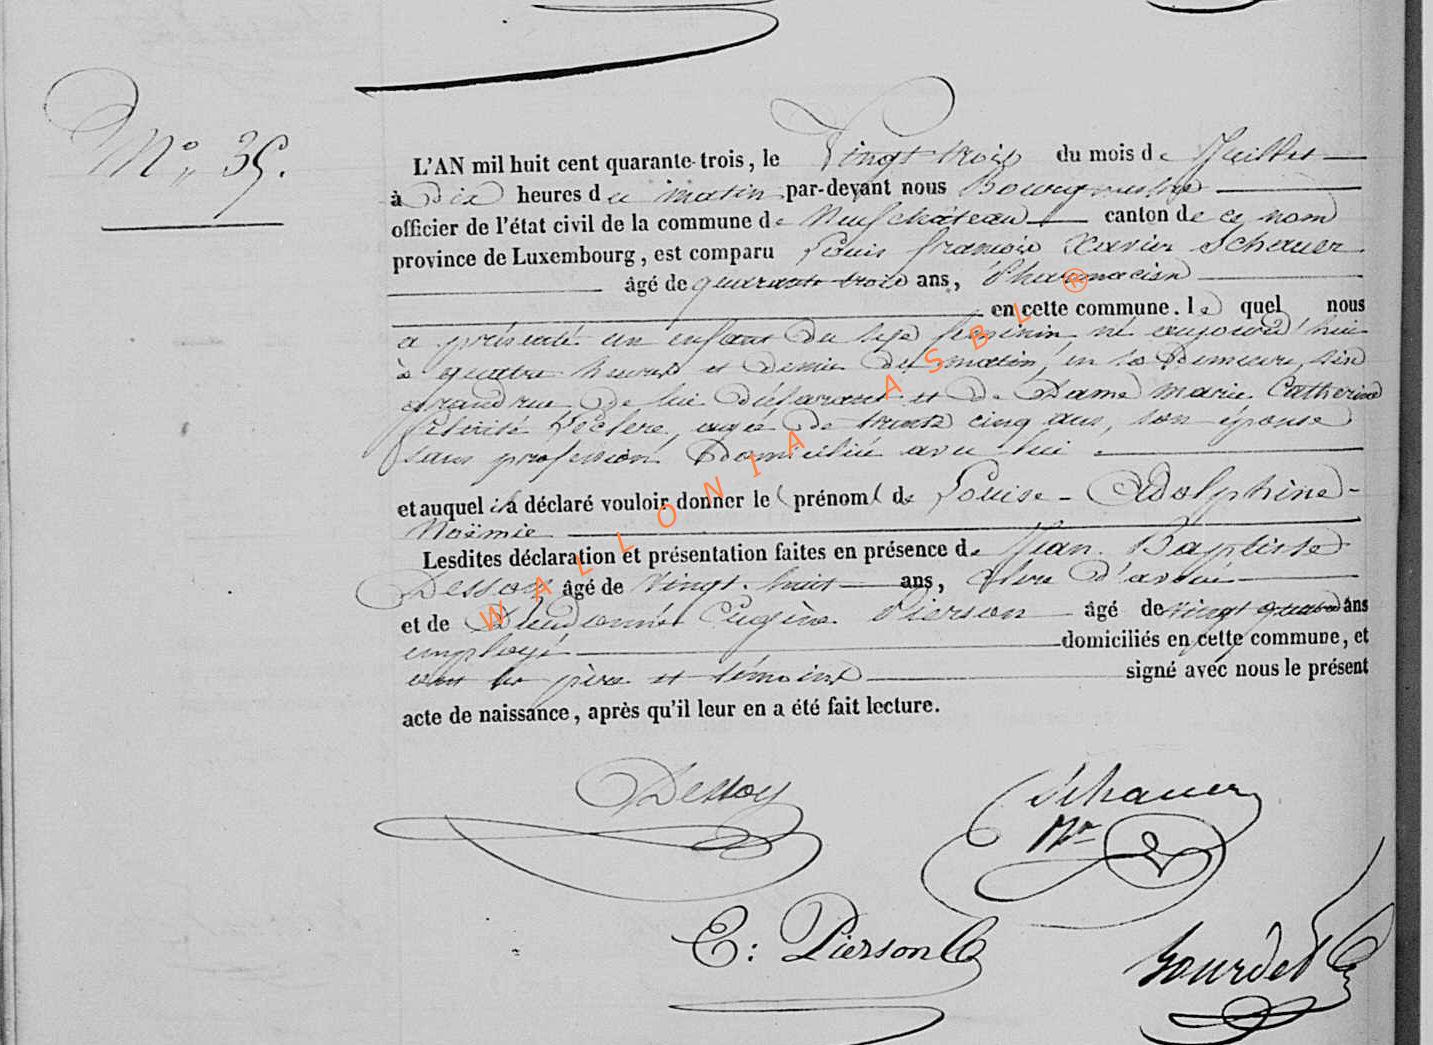 N° 35.
L'AN mil huit cent quarante-trois, le Vingt trois du mois de Juillet
à Dix heures du matin par-devant nous Bourgmestre
officier de l'état civil de la commune de Neufchateau canton de ce nom
province de Luxembourg, est comparu Louis françois Xavier Schauer
âgé de quarante trois ans, Pharmacien
en cette commune. le quel nous
a présenté un enfant du sexe feminin, né aujourd'hui
à quatre heures et demie du matin, en sa demeure, sise
grand rue de lui déclarant et de Dame Marie Catherine
Félicité Leclere, agée de trente cinq ans, son épouse
sans profession Domiciliée avec lui
et auquel il a déclaré vouloir donner le prénom de Louise - Adolphine -
Noëmie
Lesdites déclaration et présentation faites en présence de Jean Baptiste
Dessoy âgé de vingt-huit ans, Clerc d'avoué
et de Dieudonné Eugène Pierson âgé de vingt quatre ans
employé domiciliés en cette commune, et
ont les père et témoins signé avec nous le présent
acte de naissance, après qu'il leur en a été fait lecture.
Dessoy
Schauer
E: Pierson
Gourdet
WALLONIA ASBL ®